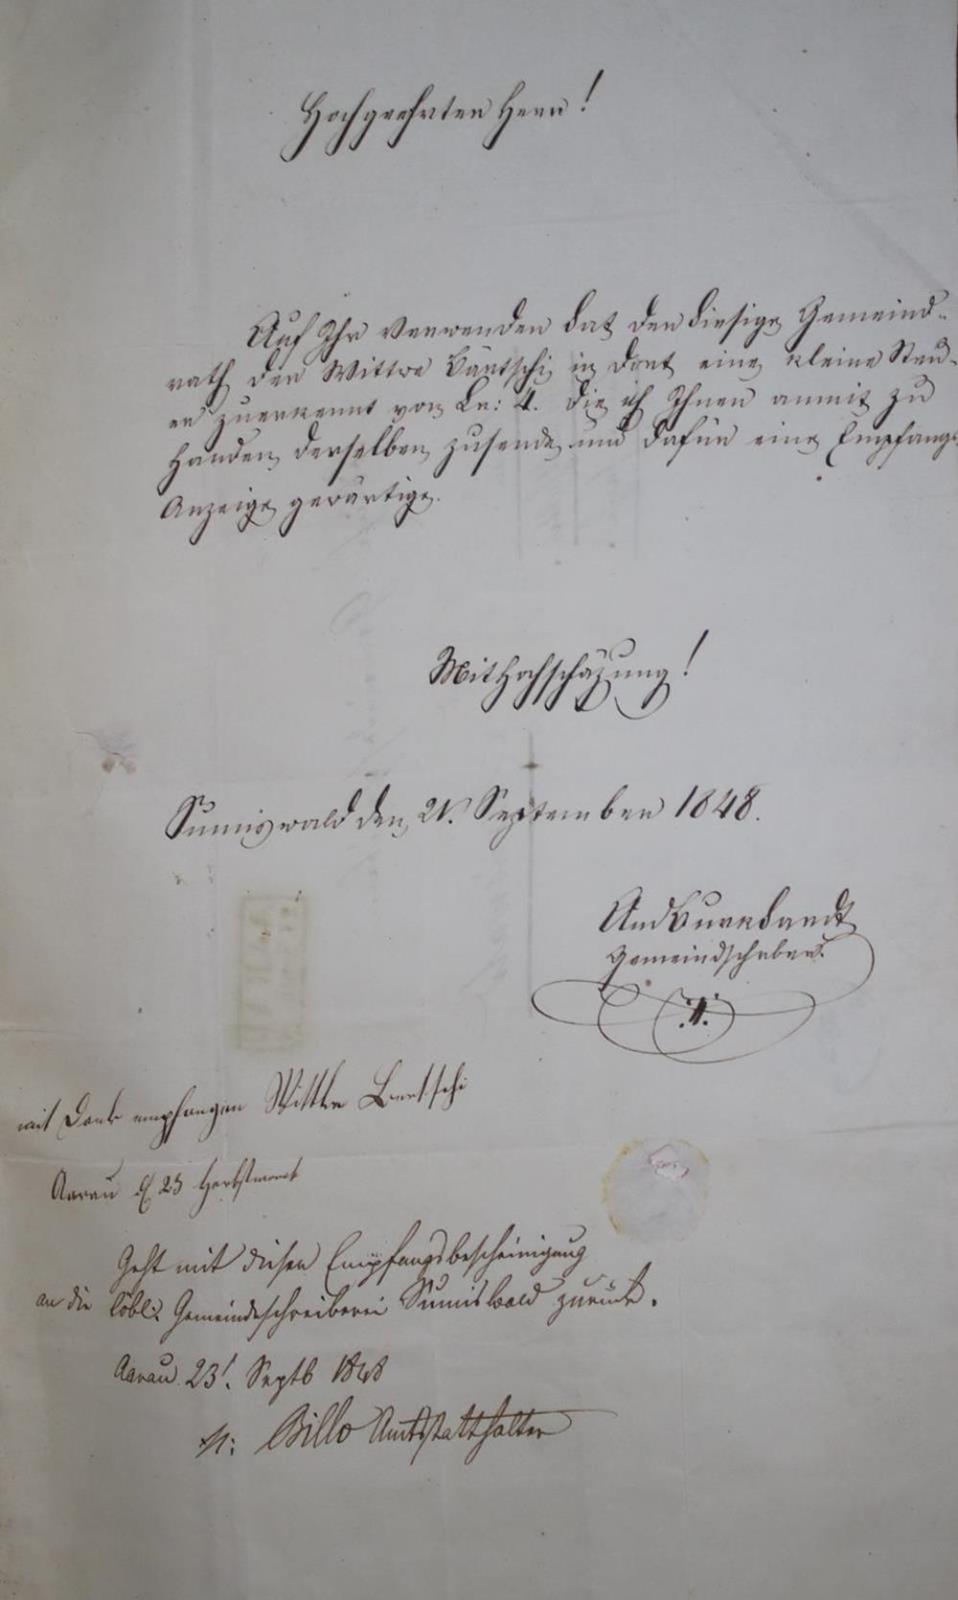 Hochgeehrter Herr!
Auf Ihr Verwenden hat der diesige Gemeind-
rath der Wittwe Bärtschi in dort eine kleine Steu-
er zuerkennt von Lr: 4. die ich Ihnen anmit zu
handen derselben zusende und dafür eine Empfangs
Anzeige gewärtige.
Mit Hochschäzung!
Sumiswald den 21. September 1848.
And Burkhardt
Gemeindschrbr.
mit Dank empfangen Wittwe Bertschi
Aarau d 23 Herbstmonat
Geht mit dieser Empfangsbescheinigung
an die löbl: Gemeindeschreiberei Sumiswald zurück.
Aarau 23t. Septb 1848
Billo Amtsstatthalter